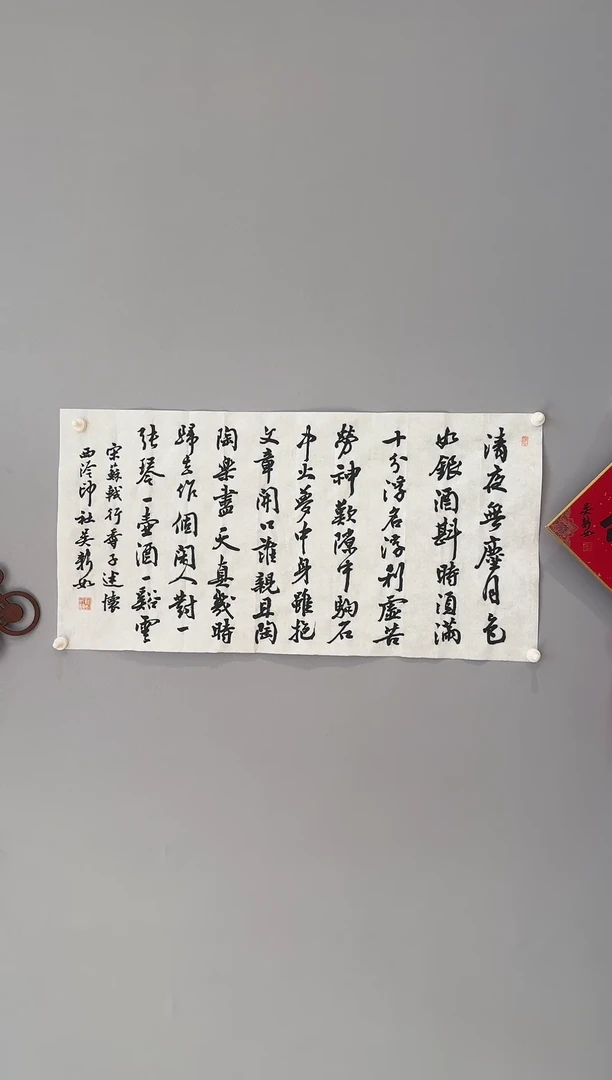 清夜無塵月色
如銀酒斟時湏滿
十分浮名浮利虛苦
勞神歎隙中駒石
中火夢中身雖抱
文章開口誰親且陶
陶樂盡天真幾時
歸去作個閑人對一
張琴一壺酒一谿雲
宋蘇軾行香子述懷
西泠印社吳新如